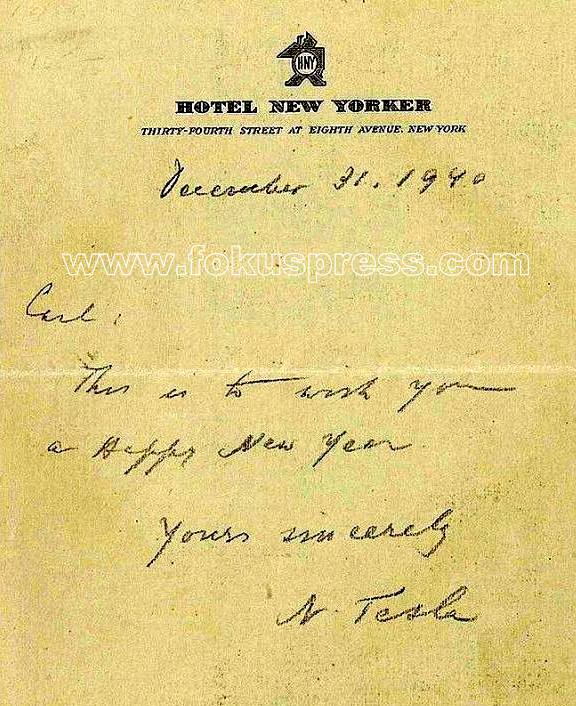 HNY
HOTEL NEW YORKER
THIRTY-FOURTH STREET AT EIGHTH AVENUE, NEW YORK
December 31. 1940
www.fokuspress.com
Carl:
This is to wish you
a Happy New Year
Yours sincerely
N. Tesla